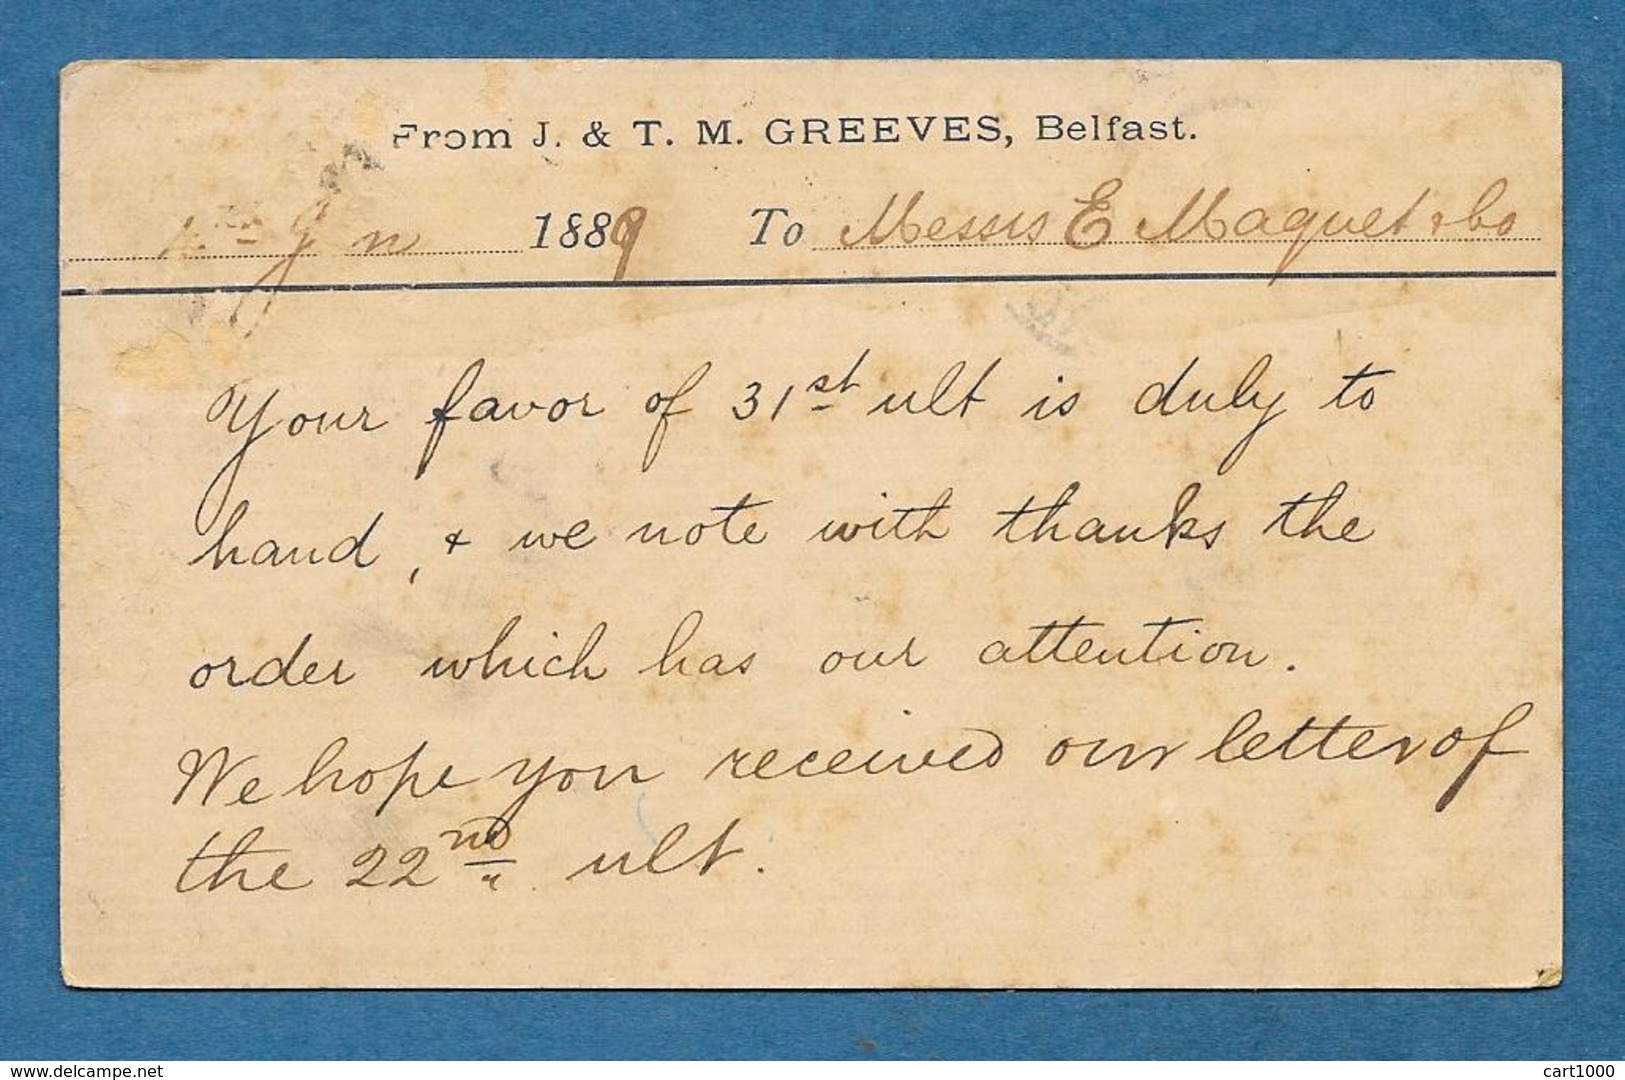 From J. & T. M. GREEVES, Belfast.
1889 To Messrs E Maquet & Co
Your favor of 31st ult is duly to
hand, & we note with thanks the
order which has our attention.
We hope you received our letter of
the 22nd ult.
delcampe.net
cart1000